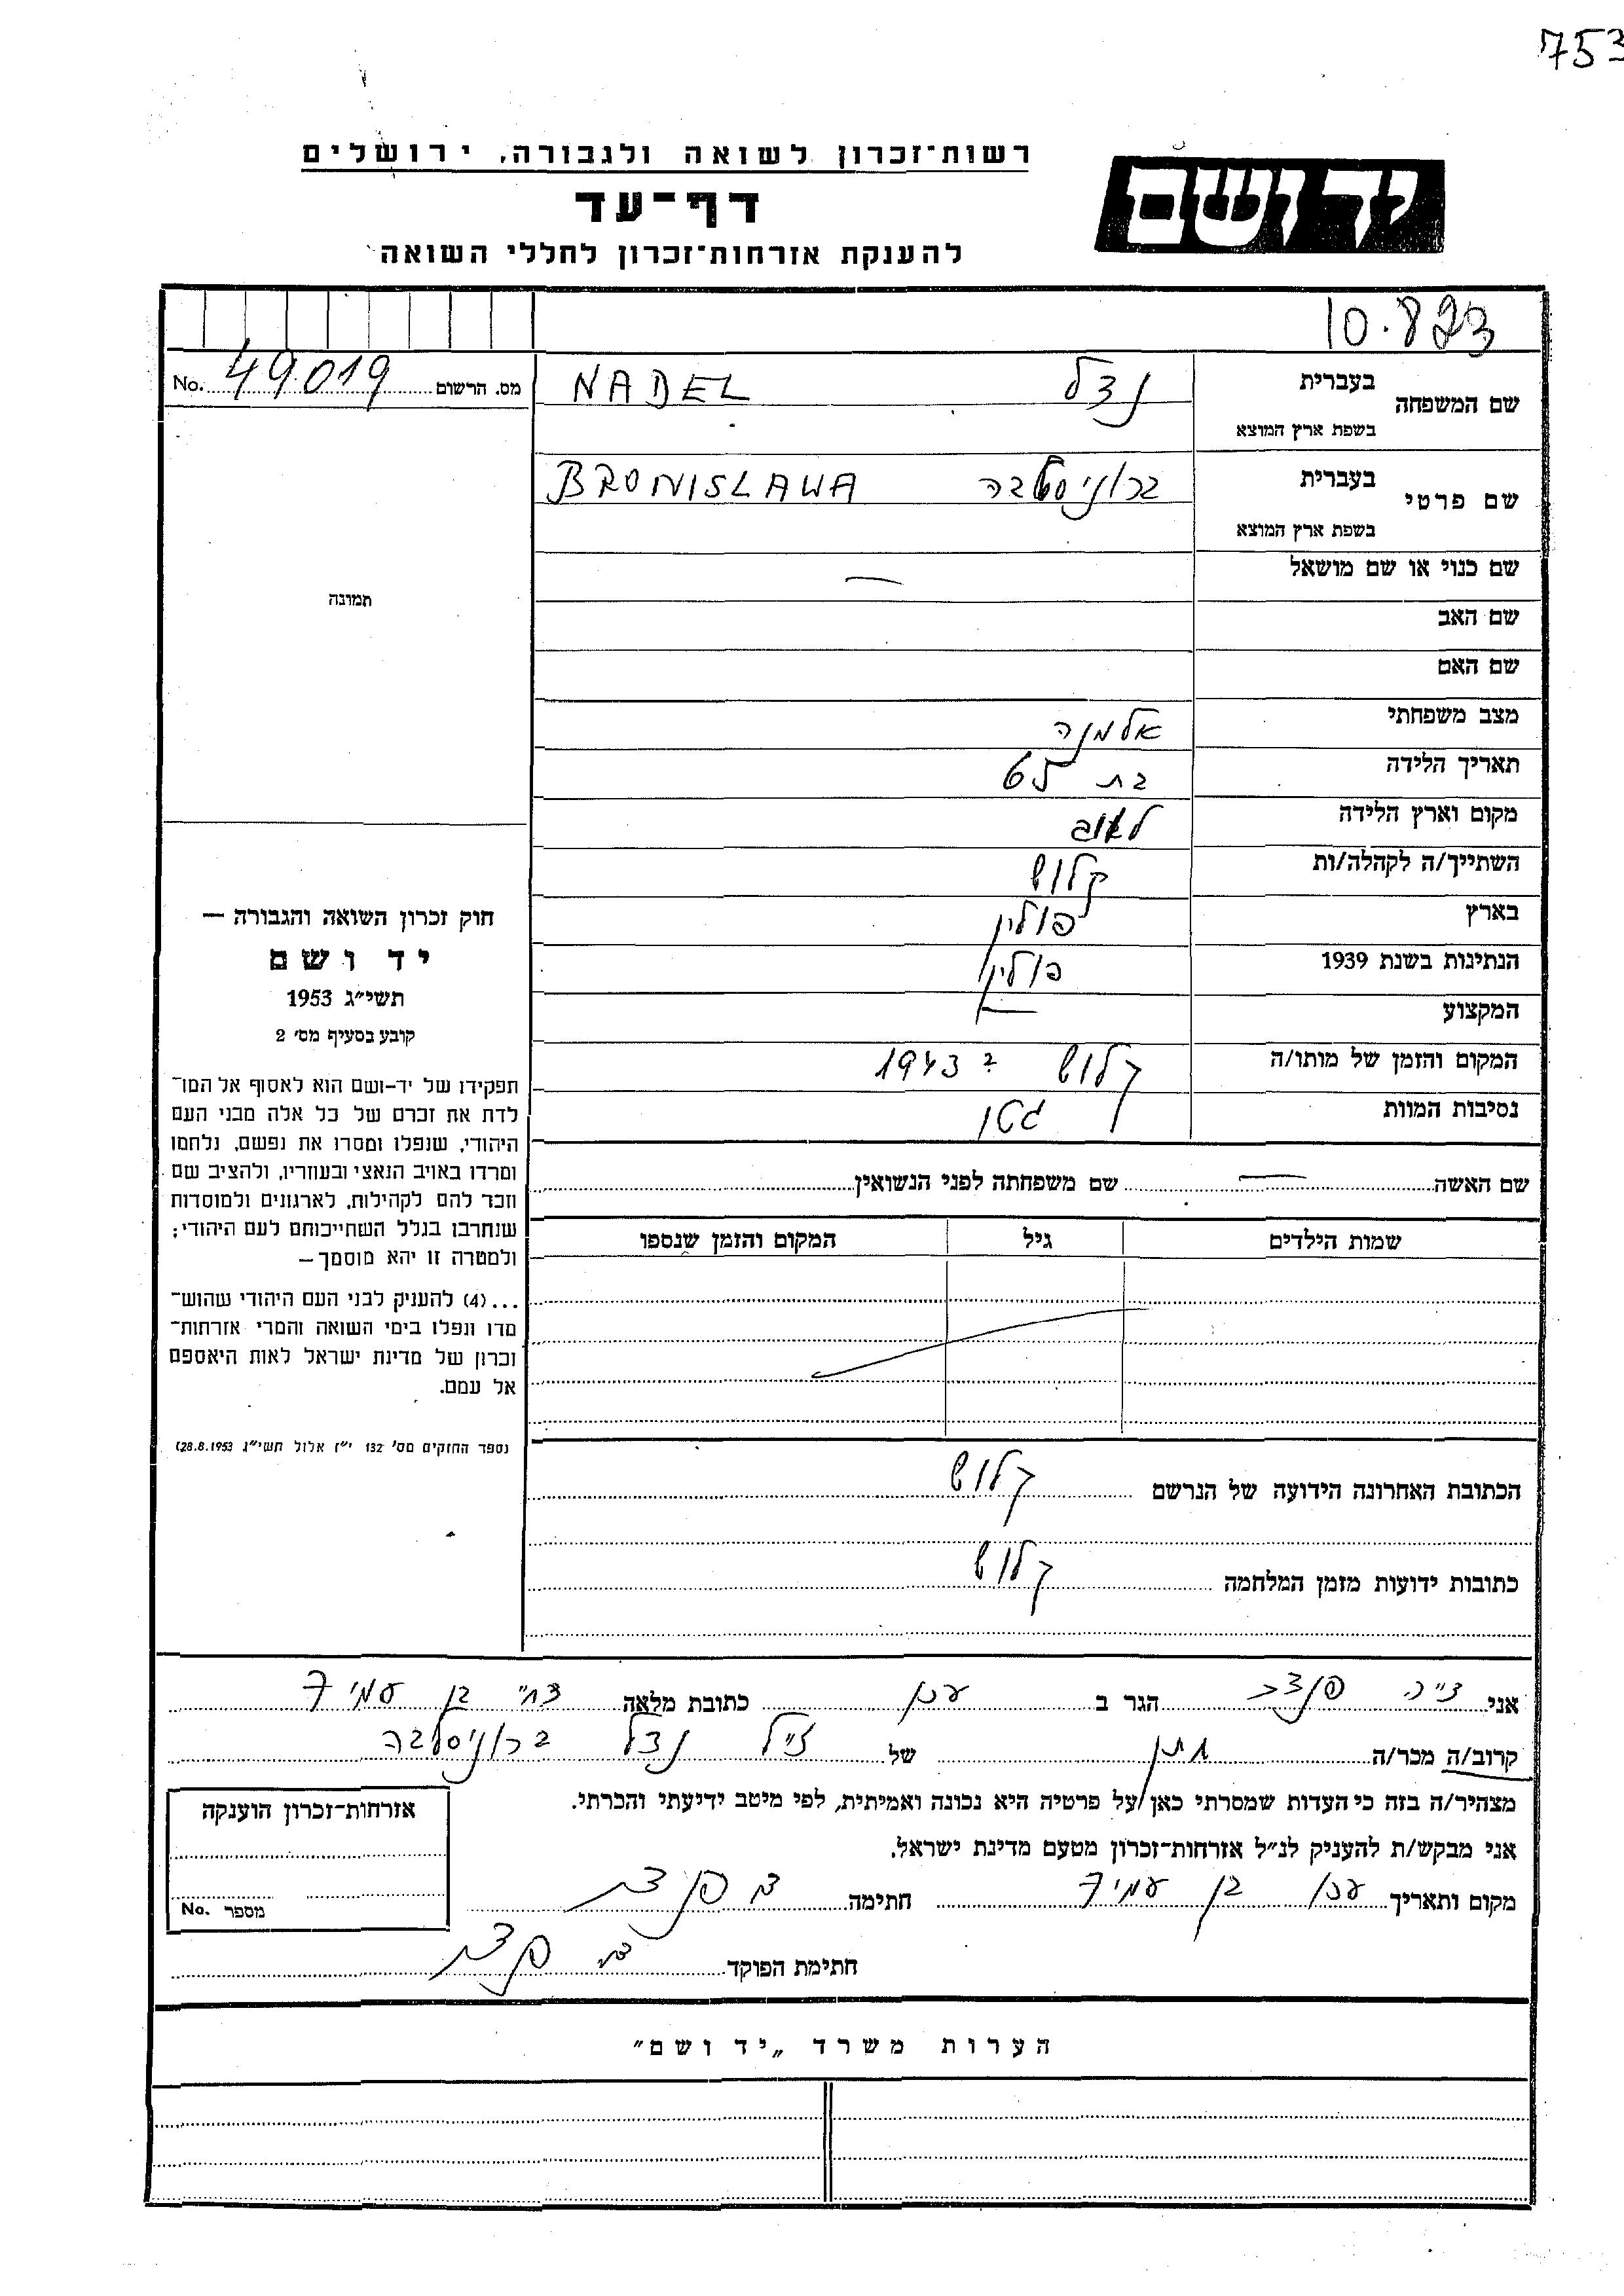 753
רשות־זכרון לשואה ולגבורה, ירושלים
יד ושם
דף־עד
להענקת אזרחות־זכרון לחללי השואה
10.823
No. 49019 מס. הרשום
שם המשפחה בעברית נדל NADEL
בשפת ארץ המוצא
שם פרטי בעברית ברוניסלבה BRONISLAWA
בשפת ארץ המוצא
שם כנוי או שם מושאל —
תמונה
שם האב
שם האם
מצב משפחתי אלמנה
תאריך הלידה בת
מקום וארץ הלידה
השתייך/ה לקהלה/ות קלוש
בארץ פולין
הנתינות בשנת 1939 פולין
המקצוע —
המקום והזמן של מותו/ה קלוש ? 1943
נסיבות המוות גטו
חוק זכרון השואה והגבורה —
יד ושם
תשי״ג 1953
קובע בסעיף מס׳ 2
תפקידו של יד-ושם הוא לאסוף אל המו־
לדת את זכרם של כל אלה מבני העם
היהודי, שנפלו ומסרו את נפשם, נלחמו
ומרדו באויב הנאצי ובעוזריו, ולהציב שם
וזכר להם לקהילות, לארגונים ולמוסדות
שנחרבו בגלל השתייכותם לעם היהודי;
ולמטרה זו יהא מוסמך—
...(4) להעניק לבני העם היהודי שהוש־
מדו ונפלו בימי השואה והמרי אזרחות־
זכרון של מדינת ישראל לאות היאספם
אל עמם.
נספר החוקים מס׳ 132 י״ז אלול תשי״ג 28.8.1953)
שם האשה — שם משפחתה לפני הנשואין
שמות הילדים גיל המקום והזמן שנספו
הכתובת האחרונה הידועה של הנרשם קלוש
כתובות ידועות מזמן המלחמה קלוש
אני הגר ב עכו כתובת מלאה בן עמי 7
קרוב/ה מכר/ה חתן של נדל ברוניסלבה
מצהיר/ה בזה כי העדות שמסרתי כאן על פרטיה היא נכונה ואמיתית, לפי מיטב ידיעתי והכרתי.
אני מבקש/ת להעניק לנ״ל אזרחות־זכרון מטעם מדינת ישראל.
מקום ותאריך עכו בן עמי 7 חתימה
חתימת הפוקד
אזרחות־זכרון הוענקה
No. מספר
הערות משרד „יד ושם״